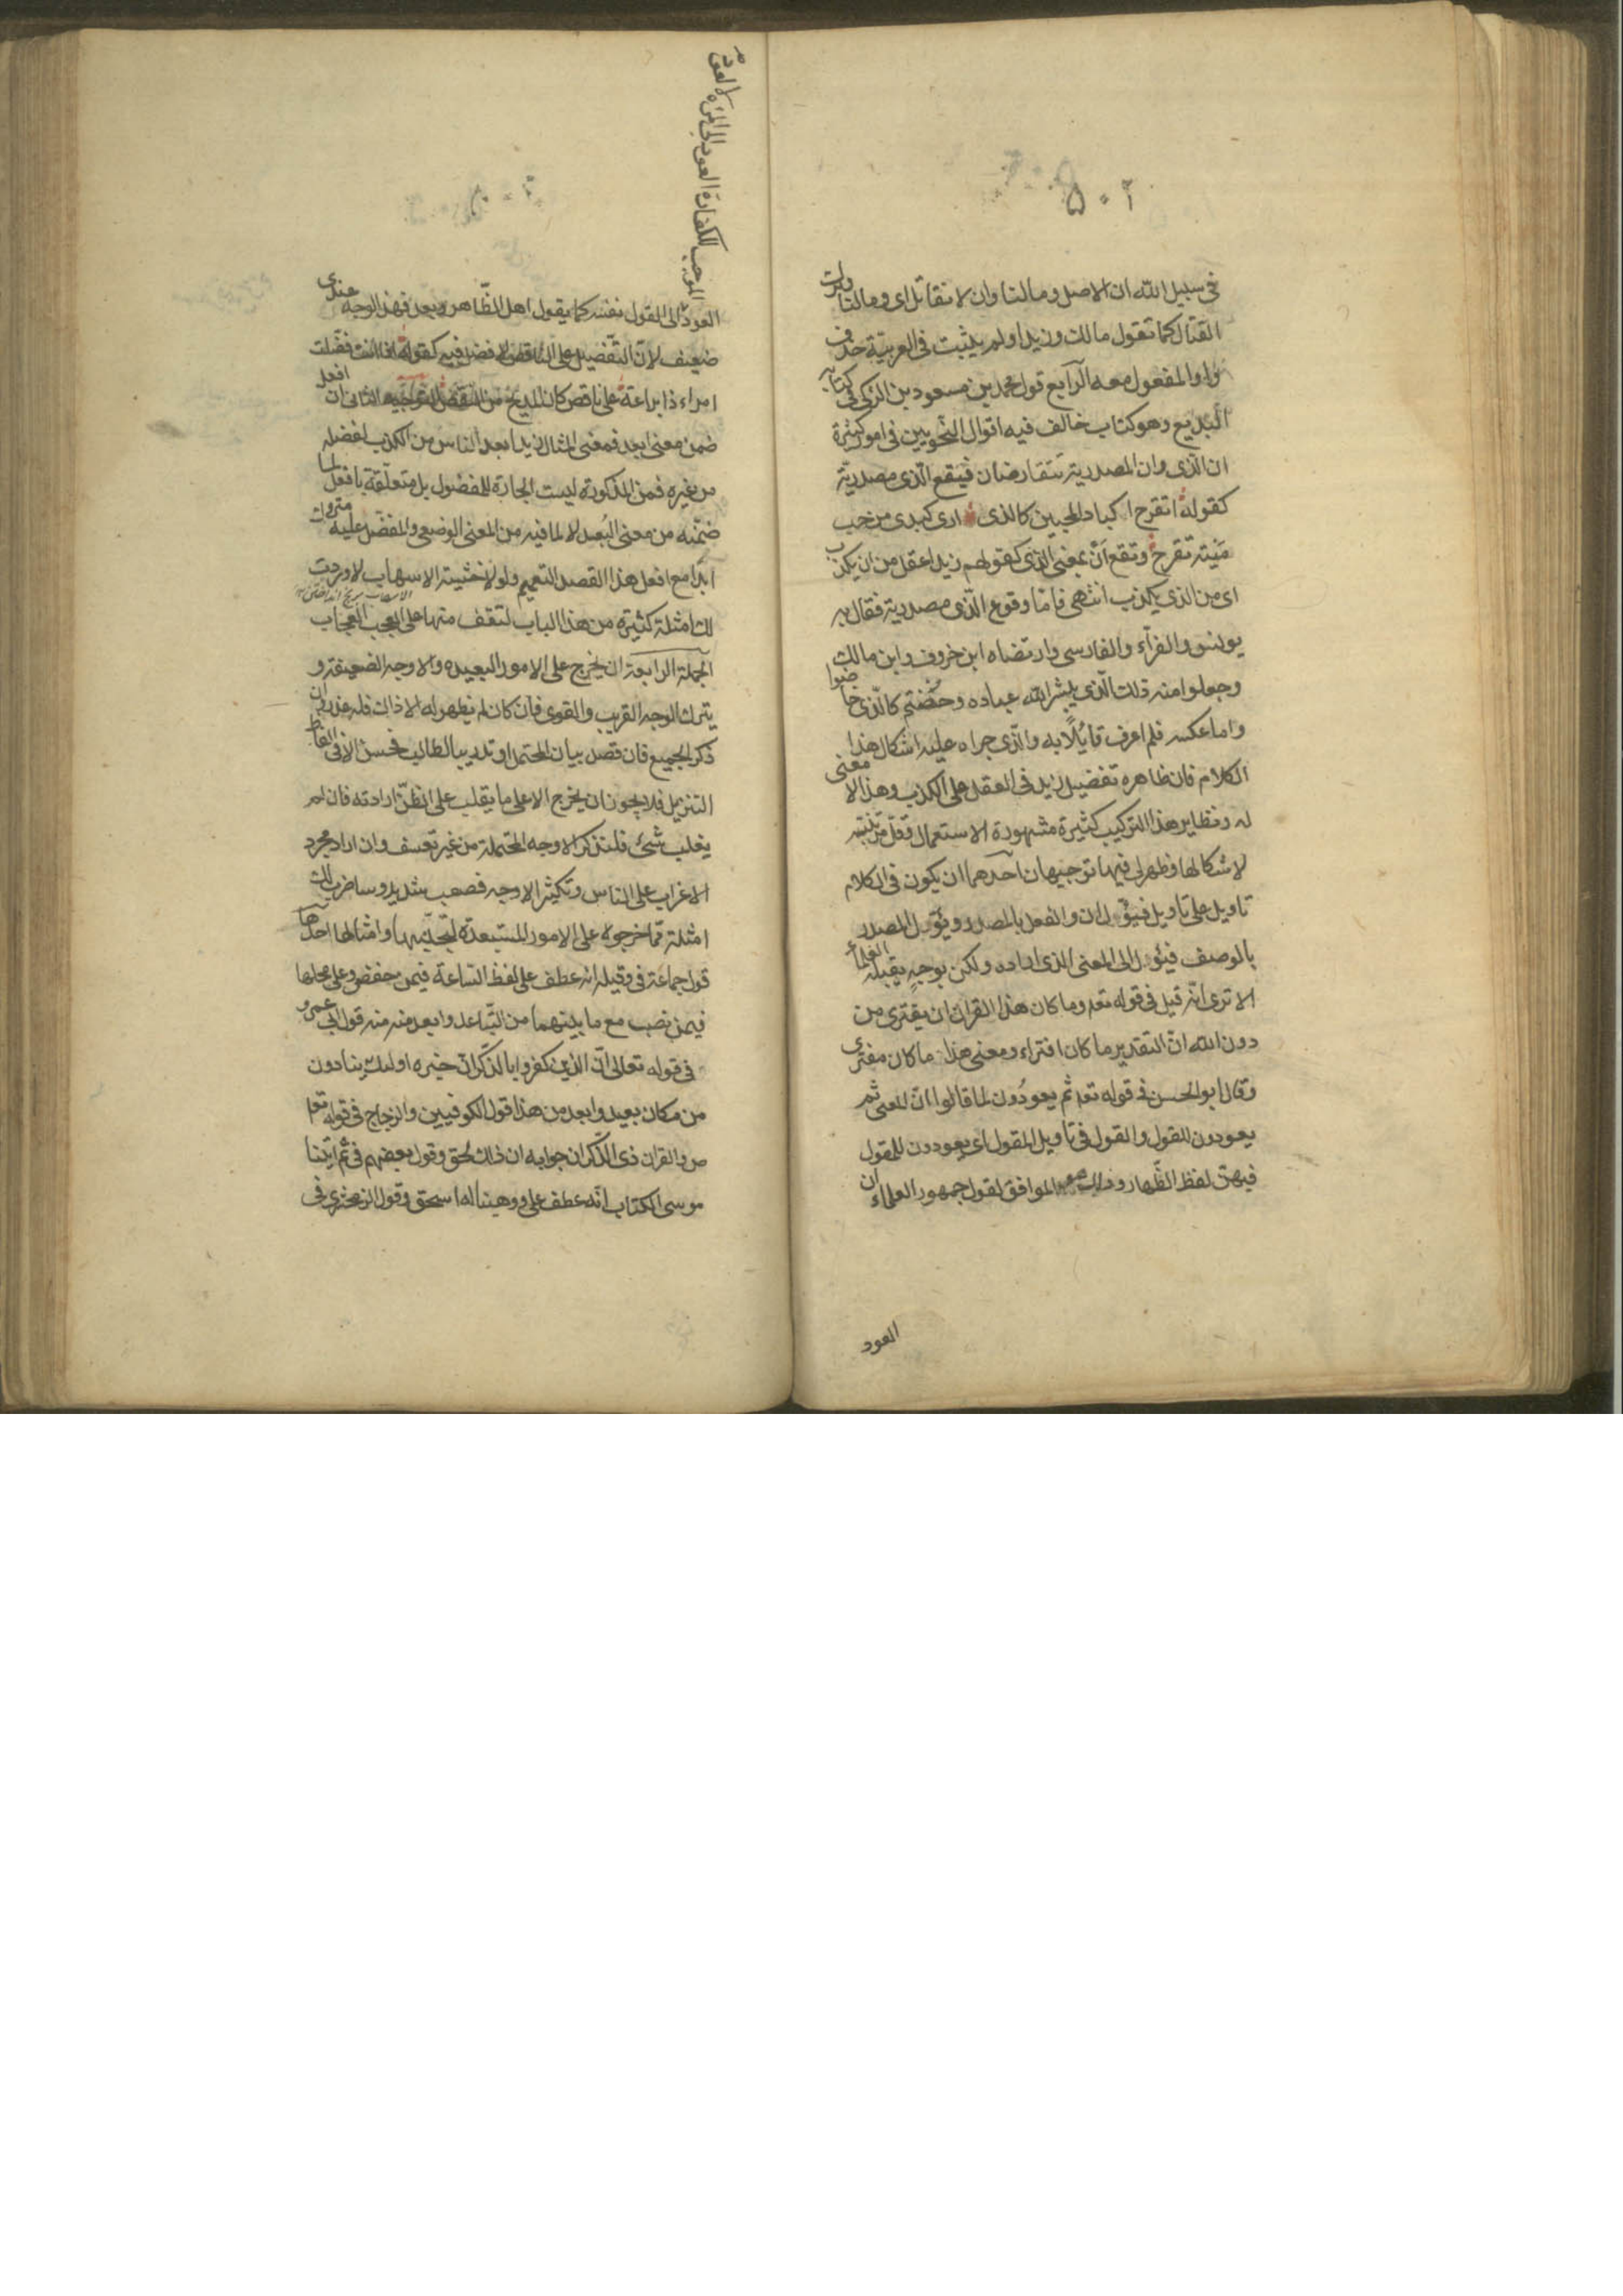 ٥٠٢
فى سبيل الله ان الاصل ومالنا وان لا نقاتل اى ومالنا وترك
القتال كما تقول مالك وزيدا ولم يثبت فى العربية حذف
واو المفعول معه الرابع قول محمد بن مسعود بن الزكى فى كتابه
البديع وهو كتاب خالف فيه اقوال النحويين فى امور كثيرة
ان الّذى وان المصدرية يتقارضان فيقع الّذى مصدريّة
كقوله اتقرح اكباد المحبين كالذى ارى كبدى من حب
ميّة تقرح وتقع اَنْ بمعنى الذى كقولهم زيد اعقل من ان يكذب
اى من الذى يكذب انتهى فاما وقوع الّذى مصدرية فقال به
يونس والفرّاء والفارسى وارتضاه ابن خروف وابن مالك
وجعلوا منه ذلك الّذى يبشر الله عباده وخضتم كالّذى خاضوا
واما عكسه فلم اعرف قائلًا به والّذى جراه عليه اشكال هذا
الكلام فان ظاهره تفضيل زيد فى العقل على الكذب وهذا لا معنى
له ونظاير هذا التركيب كثيرة مشهورة الاستعمال وقلّ من يتنبه
لاشكالها وظهر لى فيها توجيهان احدهما ان يكون فى الكلام
تاويل على تاويل فيؤل ان والفعل بالمصدر ويؤل المصدر
بالوصف فيئول الى المعنى الذى اراده ولكن بوجهٍ يقبله العلماء
الا ترى انّه قيل فى قوله تعه وما كان هذا القران ان يفترى من
دون الله انّ التقدير ما كان افتراء ومعنى هذا ما كان مفترى
وقال ابو الحسن فى قوله تعه ثم يعودُون لما قالوا انّ المعنى ثم
يعودون للقول والقول فى تاويل المقول اى يعودون للمقول
فيهنّ لفظ الظّهار وذلك هو الموافق لقول جمهور العلماء ان
العود
الموجب للكفارة العود الى المرءة لا العود
العود الى القول نفسه كما يقول اهل الظّاهر وبعد فهذا الوجه عندى
ضعيف لانّ التّفضيل على الناقص لا فضل فيه كقوله اذا انت فضّلت
امراء ذا براعة على ناقص كان المديح من النقص التوجيه الثانى ان افعل
ضمن معنى ابعد فمعنى المثال زيد ابعد الناس من الكذب لفضله
من غيره فمن المذكورة ليست الجارة للمفضول بل متعلّقة بافعل لما
ضمّنه من معنى البُعد لا لما فيه من المعنى الوضعى والمفضّل عليه متروك
ابدًا مع افعل هذا القصد التعميم ولولا خشية الاسهاب لاوردت
لك امثلة كثيرة من هذا الباب لتقف منها على العجب العجاب
الجملة الرابعة ان يخرج على الامور البعيده والاوجه الضعيفة و
يترك الوجه القريب والقوى فان كان لم يظهر له الا ذاك فله عذر وان
ذكر الجميع فان قصد بيان المحتمل او تدريب الطالب فحسن الا فى الفاظ
التنزيل فلا يجوز ان يخرج الا على ما يغلب على الظنّ ارادته فان لم
يغلب شئ فلتذكر الاوجه المحتملة من غير تعسف وان اراد مجرد
الاغراب على الناس وتكثير الاوجه فصعب شديد وساضرب لك
امثلة ممّا خرجوه على الامور المستبعدة لتجتنبها وامثالها احدها
قول جماعة فى وقيله انه عطف على لفظ السّاعة فيمن خفض وعلى محلها
فيمن نصب مع ما بينهما من التّباعد وابعد منه قول ابى عمرو
فى قوله تعالى انّ الذين كفروا بالذّكر انّ خبره اولئك ينادون
من مكان بعيد وابعد من هذا قول الكوفيين والزجاج فى قوله تعه
ص والقران ذى الذّكر ان جوابه ان ذلك لحق وقول بعضهم فى ثم اتينا
موسى الكتاب انّه عطف على ووهبنا له اسحق وقول الزمخشرى فى